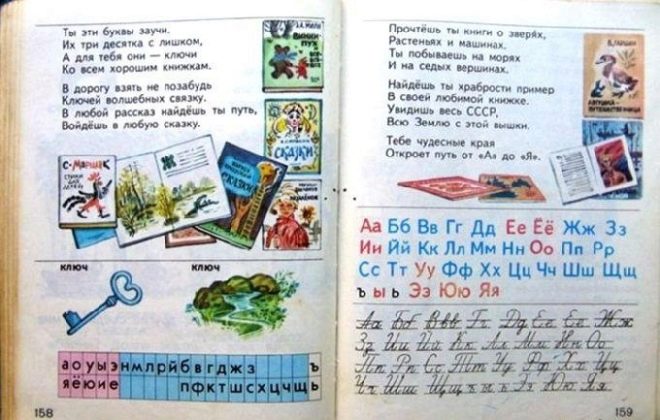 Ты эти буквы заучи.
Их три десятка с лишком,
А для тебя они — ключи
Ко всем хорошим книжкам.
В дорогу взять не позабудь
Ключей волшебных связку.
В любой рассказ найдёшь ты путь,
Войдёшь в любую сказку.
ВИННИ-
ПУХ
СКАЗКИ
С. МАРШАК
СКАЗКИ
КЛЮЧ
КЛЮЧ
а о у ы э н м л р й б в г д ж з ъ
я ё ю и е п ф к т ш с х ц ч щ ь
158
Прочтёшь ты книги о зверях,
Растеньях и машинах.
Ты побываешь на морях
И на седых вершинах.
Найдёшь ты храбрости пример
В своей любимой книжке.
Увидишь весь СССР,
Всю Землю с этой вышки.
Тебе чудесные края
Откроет путь от «А» до «Я».
В. ГАРШИН
ЛЯГУШКА-
ПУТЕШЕСТВЕННИЦА
Аа Бб Вв Гг Дд Ее Ёё Жж Зз
Ии Йй Кк Лл Мм Нн Оо Пп Рр
Сс Тт Уу Фф Хх Цц Чч Шш Щщ
ъ ы ь Ээ Юю Яя
Аа Бб Вв Гг Дд Ее Ёё Жж
Зз Ии Йй Кк Лл Мм Нн Оо
Пп Рр Сс Тт Уу Фф Хх Цц
Чч Шш Щщ ъ ы ь Ээ Юю Яя
159